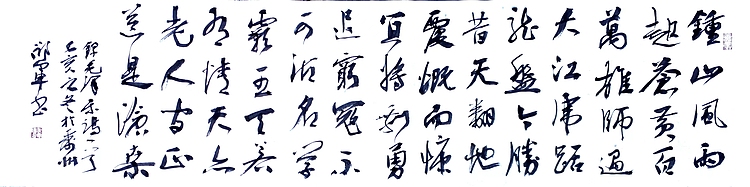 鍾山風雨
起蒼黃百
萬雄師過
大江虎踞
龍盤今勝
昔天翻地
覆慨而慷
宜將剩勇
追窮寇不
可沽名學
霸王天若
有情天亦
老人間正
道是滄桑
錄毛澤東詩一首
己亥
書